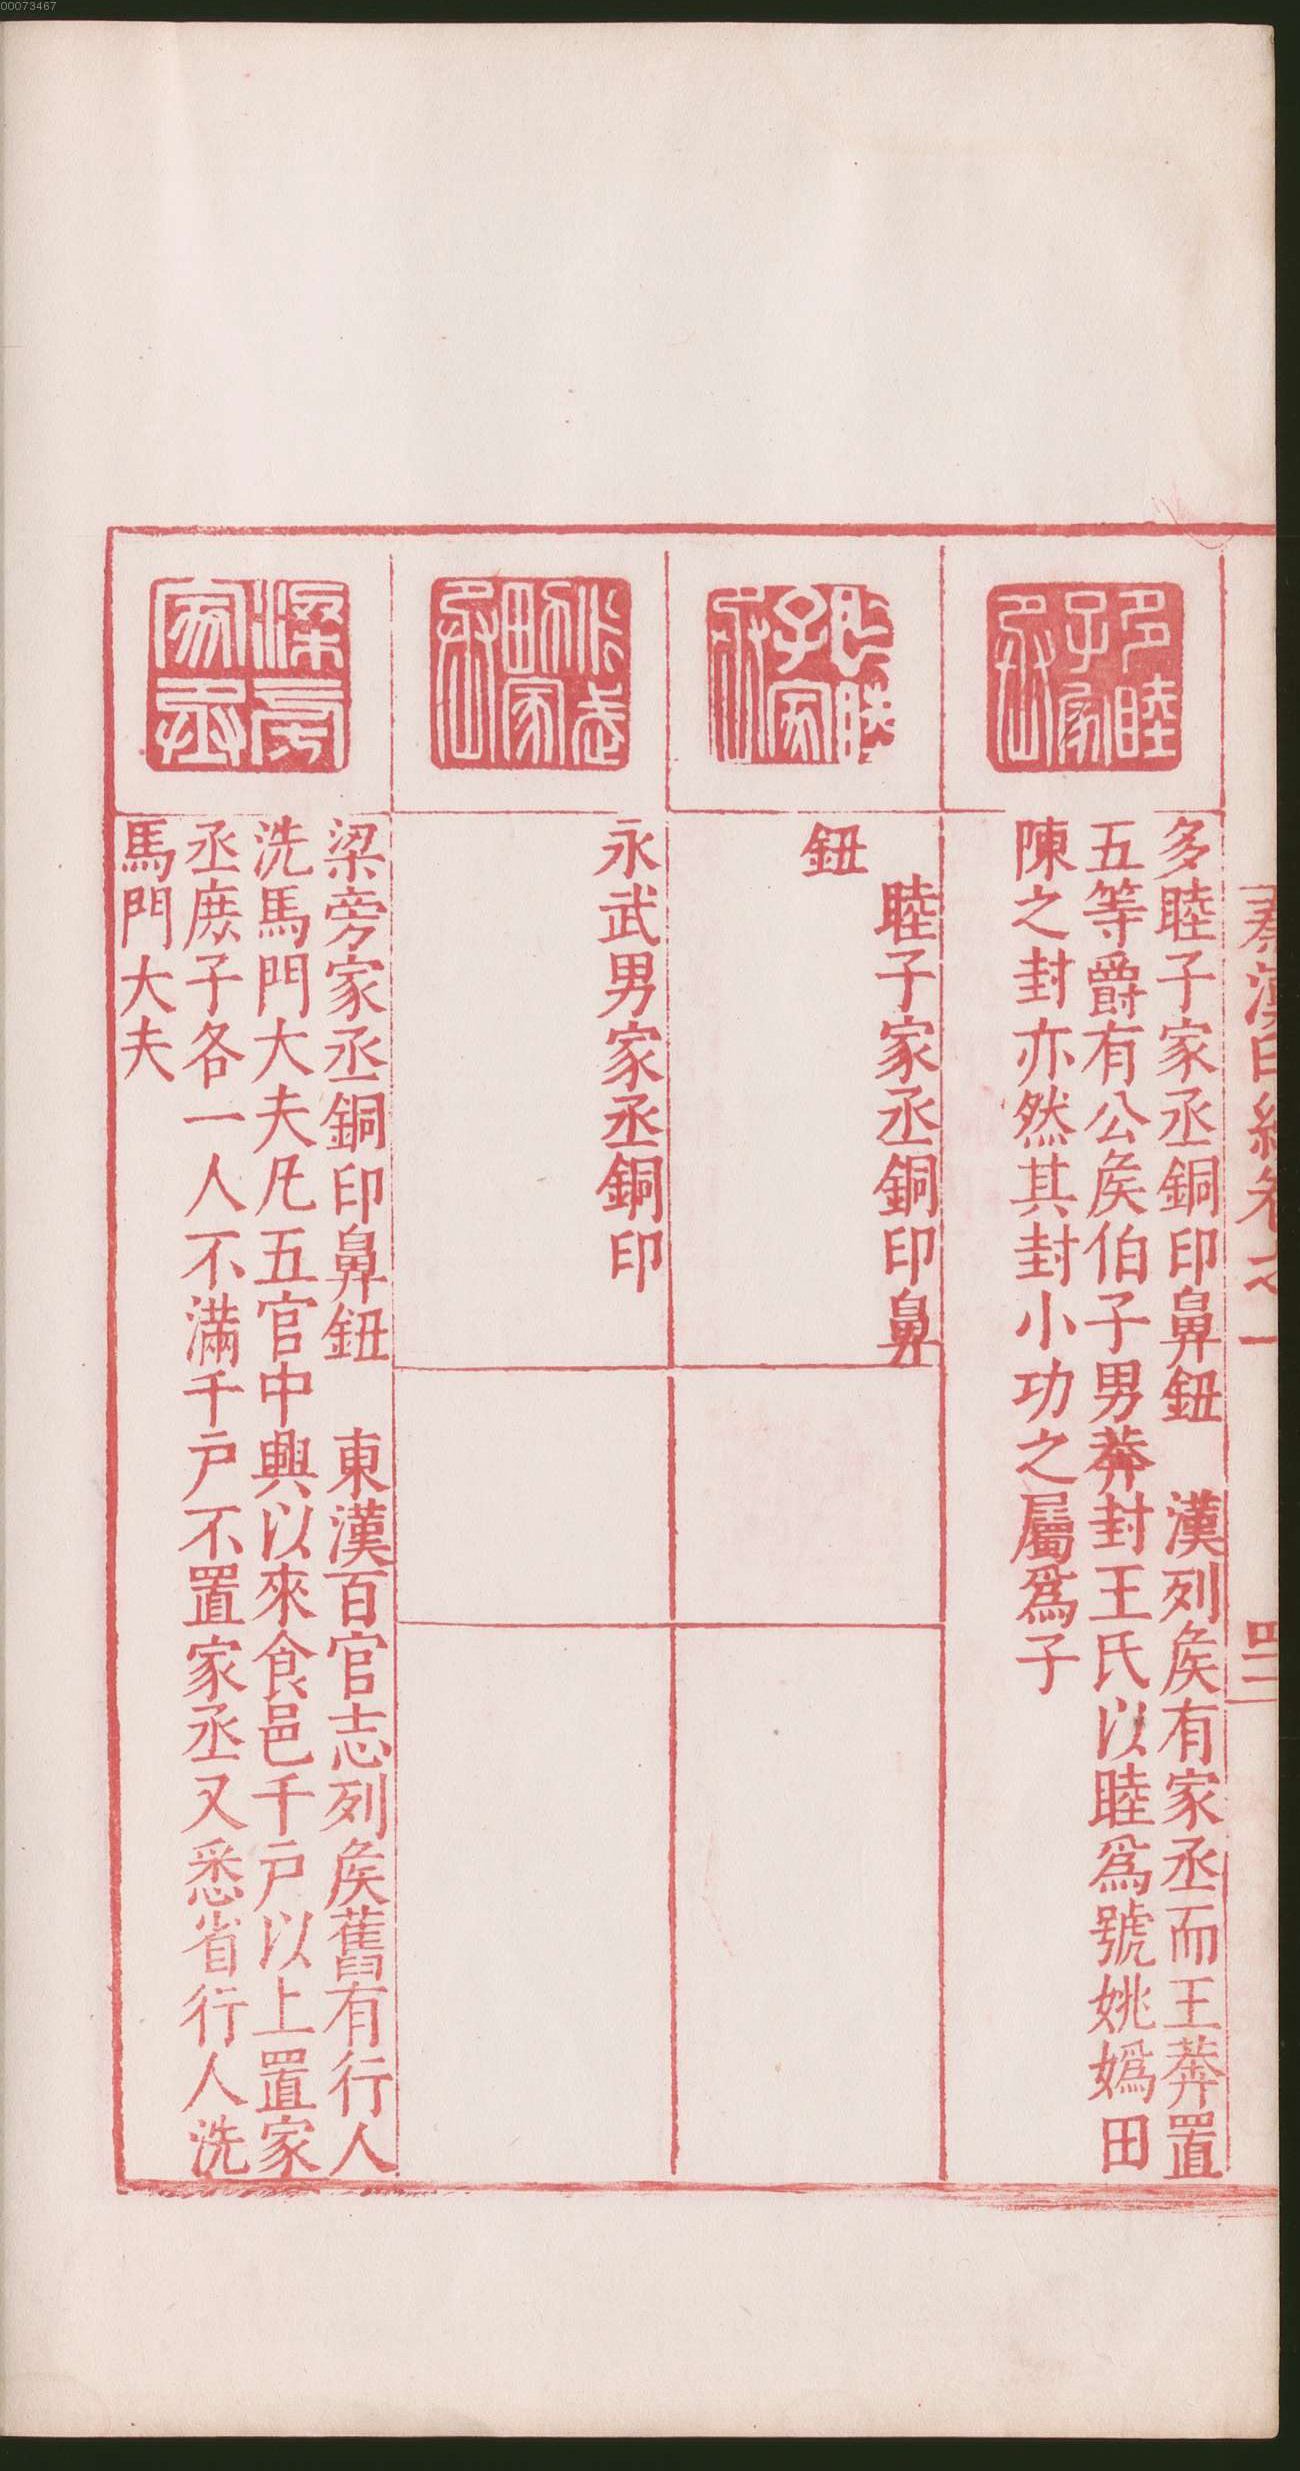 00073467
秦漢印統卷之一
四二
多睦子家丞
多睦子家丞銅印鼻鈕　漢列矦有家丞而王莽置
五等爵有公矦伯子男莽封王氏以睦爲號姚嬀田
陳之封亦然其封小功之屬爲子
睦子家丞
睦子家丞銅印鼻
鈕
永武男家丞
永武男家丞銅印
梁旁家丞
梁旁家丞銅印鼻鈕　東漢百官志列矦舊有行人
洗馬門大夫凡五官中興以來食邑千戶以上置家
丞庶子各一人不滿千戶不置家丞又悉省行人洗
馬門大夫